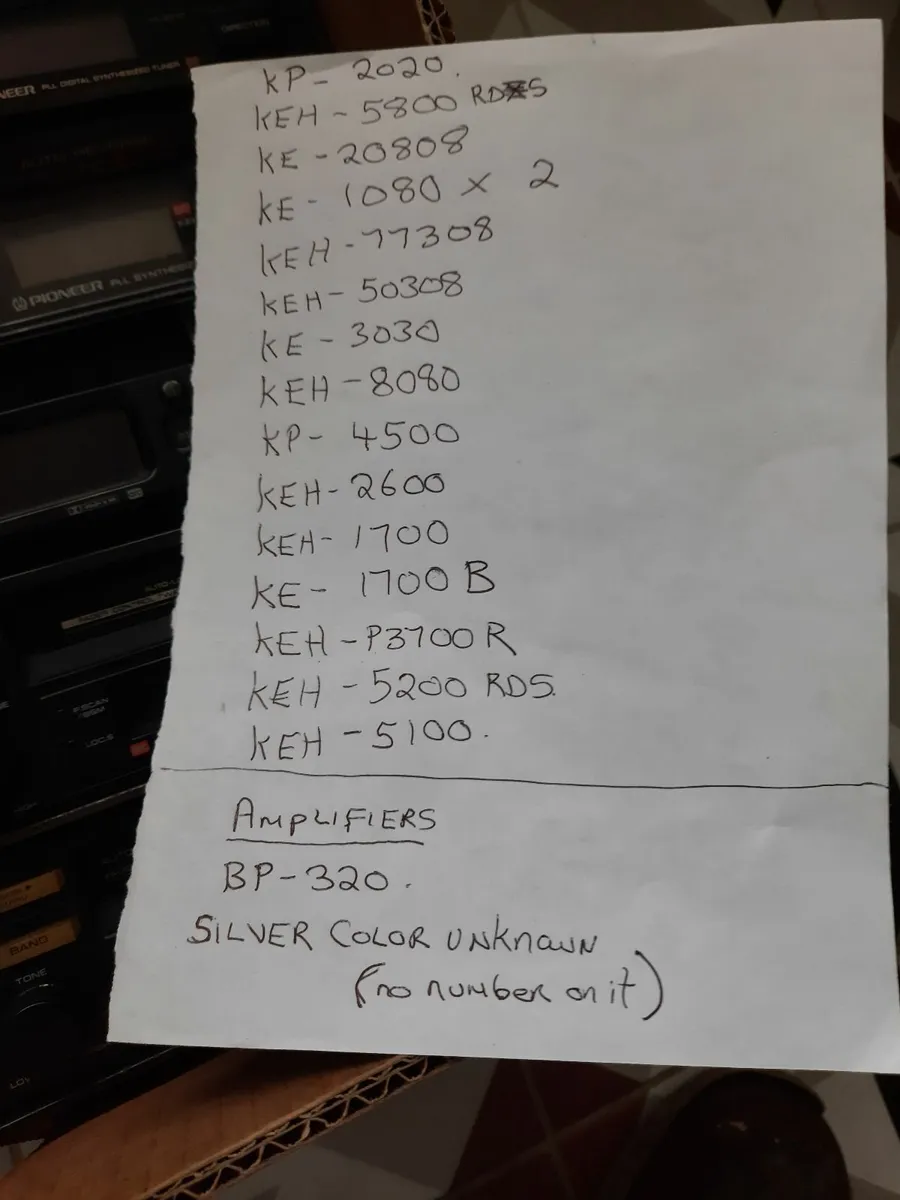 KP- 2020.
KEH - 5800 RDS
KE - 20808
KE - 1080 x 2
KEH - 77308
KEH - 50308
KE - 3030
KEH - 8080
KP- 4500
KEH- 2600
KEH- 1700
KE- 1700 B
KEH - P3700 R
KEH - 5200 RDS.
KEH - 5100.
AMPLIFIERS
BP-320.
SILVER COLOR UNKNOWN
(no number on it)
PLL DIGITAL SYNTHESIZED TUNER
PIONEER PLL
BAND
TONE